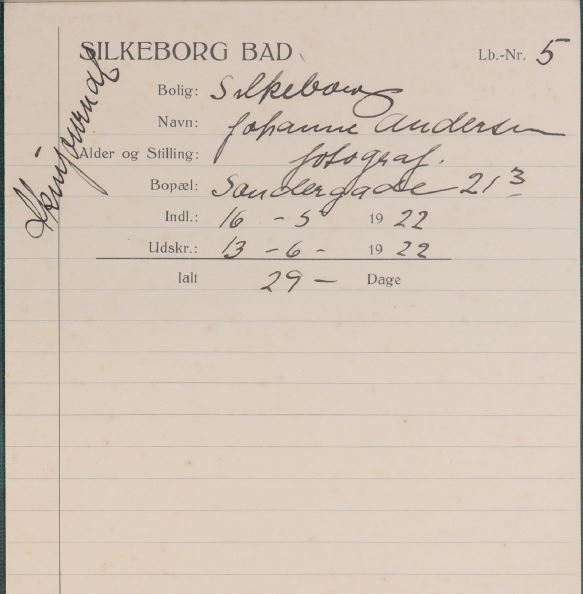 SILKEBORG BAD
Lb.-Nr. 5
Bolig: Silkeborg
Navn: Johanne Andersen
Alder og Stilling: fotograf.
Bopæl: Søndergade 21 3
Indl.: 16 - 5 19 22
Udskr.: 13 - 6 - 19 22
Ialt 29 - Dage